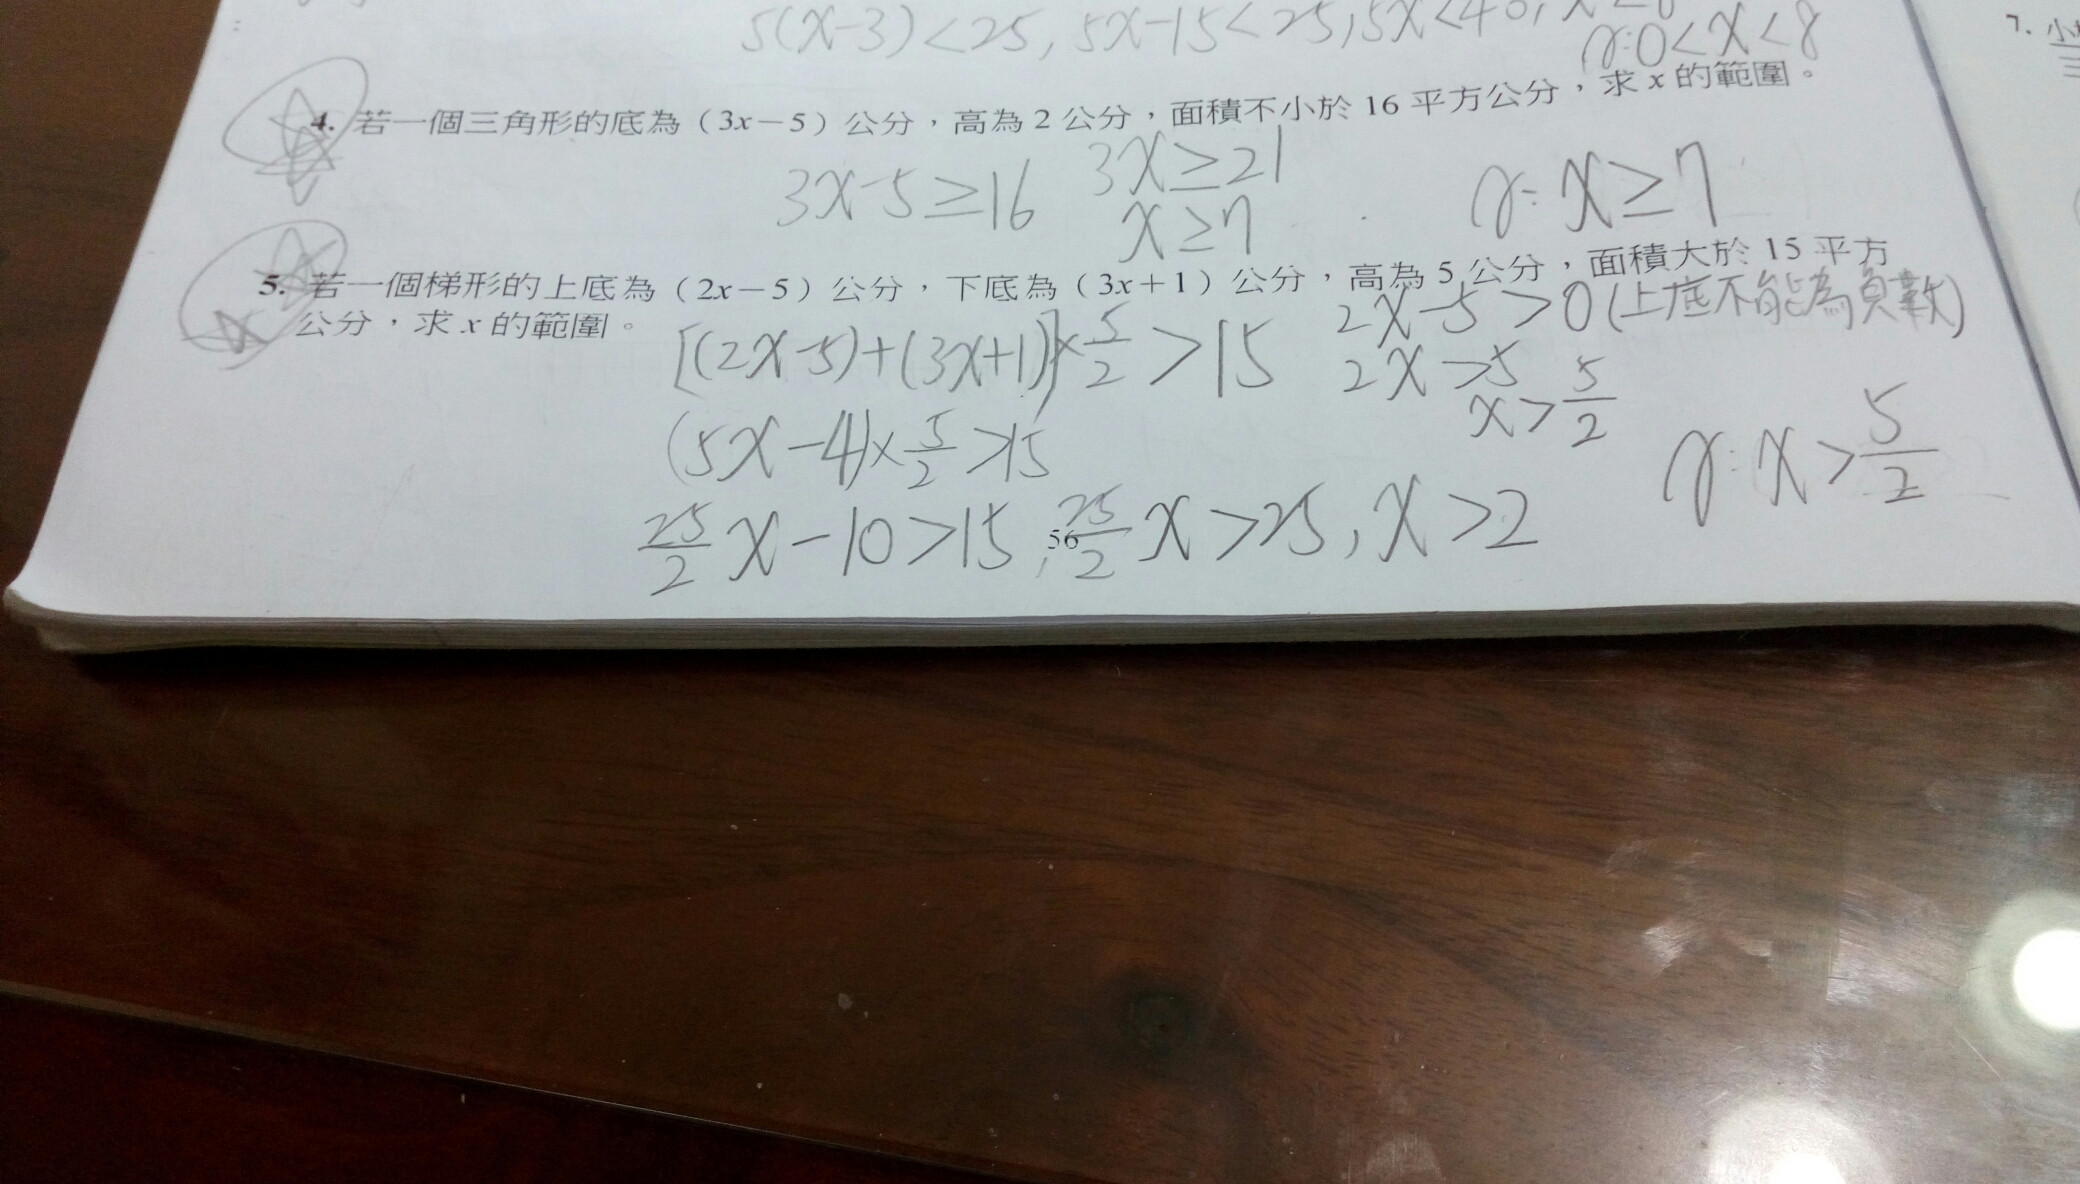 5(x-3)<25, 5x-15<25, 5x<40, x<8
A:0<x<8
4. 若一個三角形的底為（3x－5）公分，高為 2 公分，面積不小於 16 平方公分，求 x 的範圍。
3x-5≥16
3x≥21
x≥7
A: x≥7
5. 若一個梯形的上底為（2x－5）公分，下底為（3x＋1）公分，高為 5 公分，面積大於 15 平方
公分，求 x 的範圍。
[(2x-5)+(3x+1)]×5/2>15
2x-5>0(上底不能為負數)
2x>5
x>5/2
(5x-4)×5/2>15
A: x>5/2
25/2x-10>15, 25/2x>25, x>2
56
7. 小